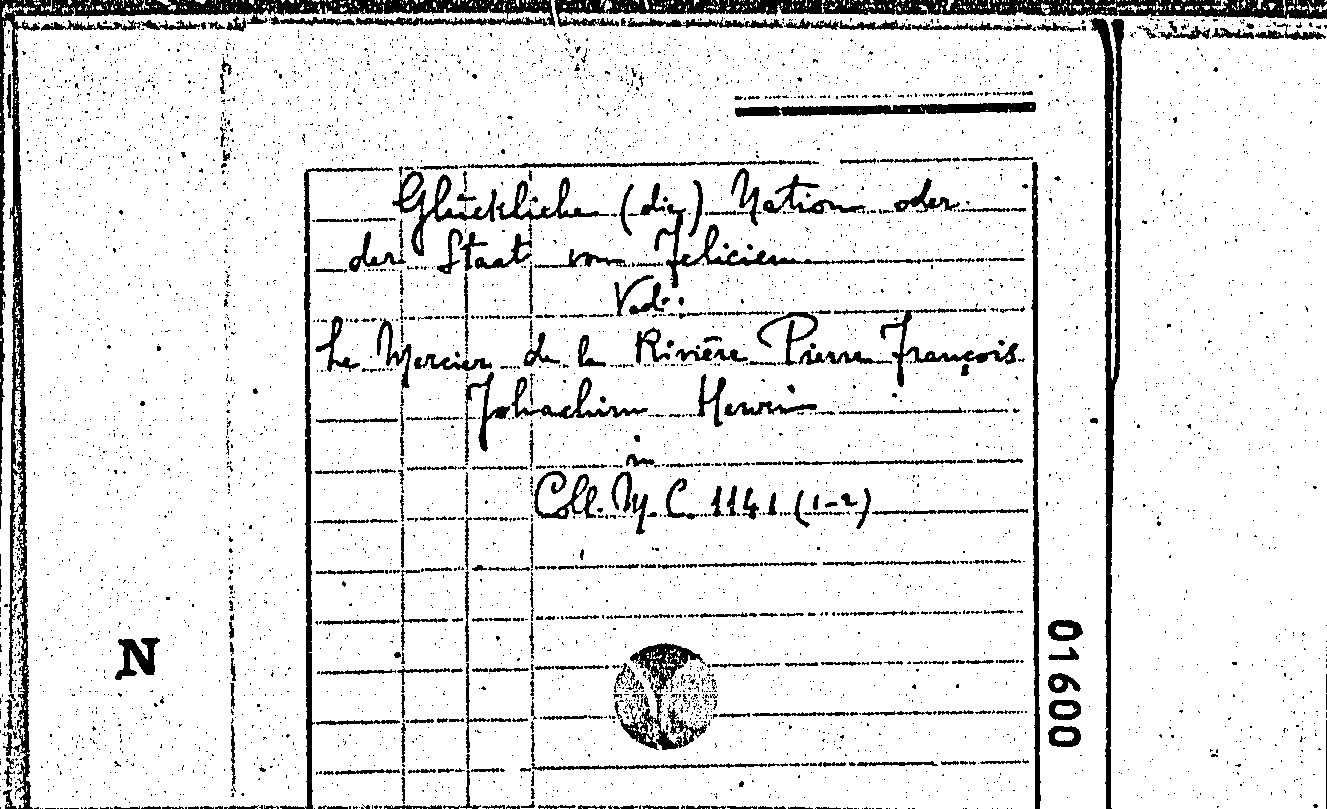 Glückliche (die) Nation oder
der Staat von Felicien
Ved:
Le Mercier de la Rivière Pierre François
Johachim Henri
in
Coll. M. C. 1141 (1-2)
N
01600